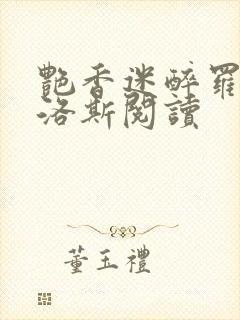 艷香迷醉羅
洛斯閱讀
董玉禮